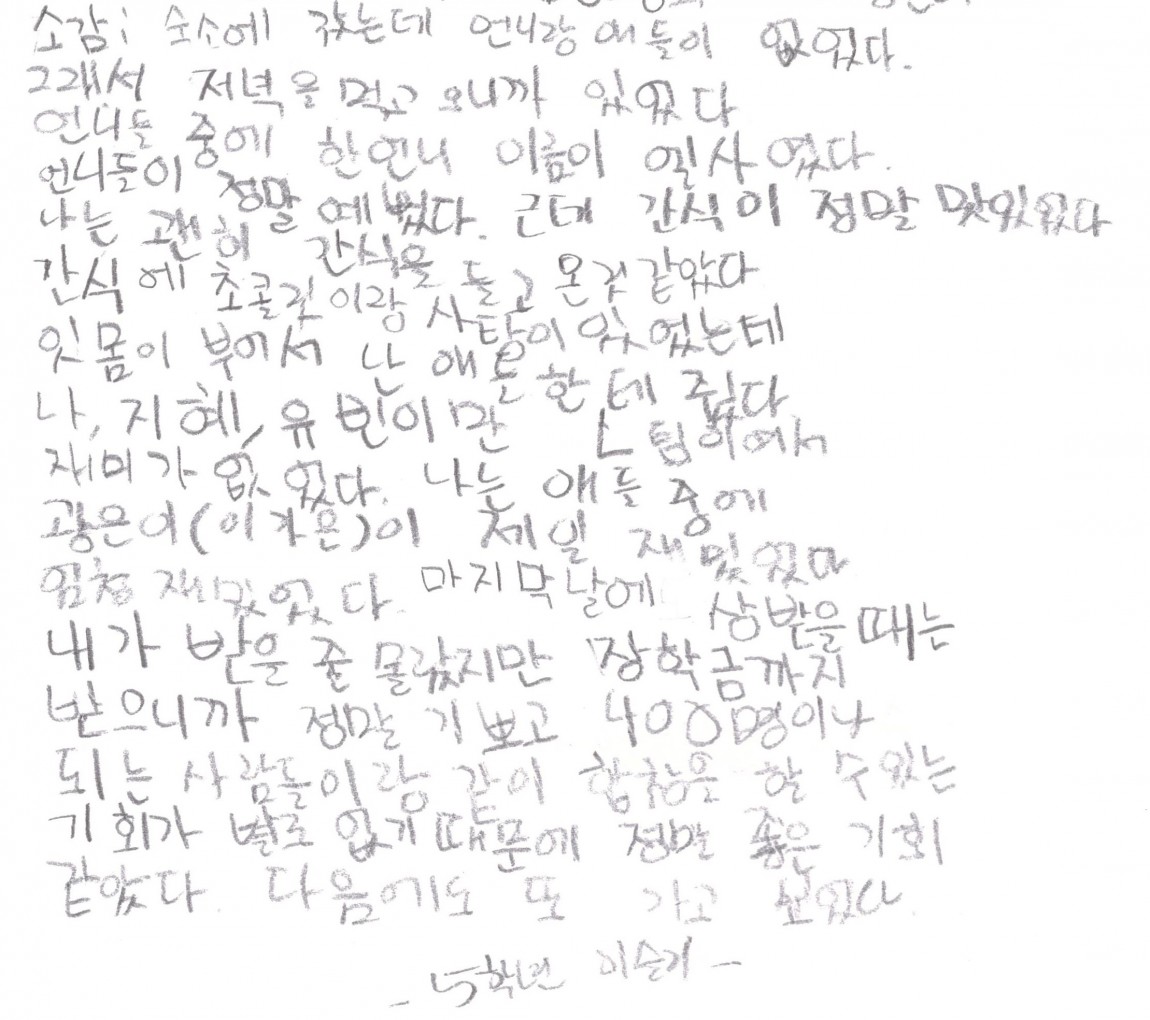 소감: 숙소에 갔는데 언니랑 애들이 없었다.
그래서 저녁을 먹고 오니까 있었다
언니들 중에 한언니 이름이 엘사 였다.
언니들이 정말 예뻤다. 근데 간식이 정말 맛있었다
나는 괜히 간식을 들고 온것 같았다
간식에 초콜릿이랑 사탕이 있었는데
잇몸이 부어서 난 애들한테 줬다
나, 지혜, 유빈이만 L팀이여서
재미가 없었다. 나는 애들 중에
광은이(이가은)이 제일 재밌었다
엄청 재밌었다. 마지막날에 상받을 때는
내가 받을 줄 몰랐지만 장학금까지
받으니까 정말 기뻐고 400명이나
되는 사람들이랑 같이 합창을 할 수 있는
기회가 별로 없기 때문에 정말 좋은 기회
같았다. 다음에도 또 가고 싶었다.
- 5학년 -